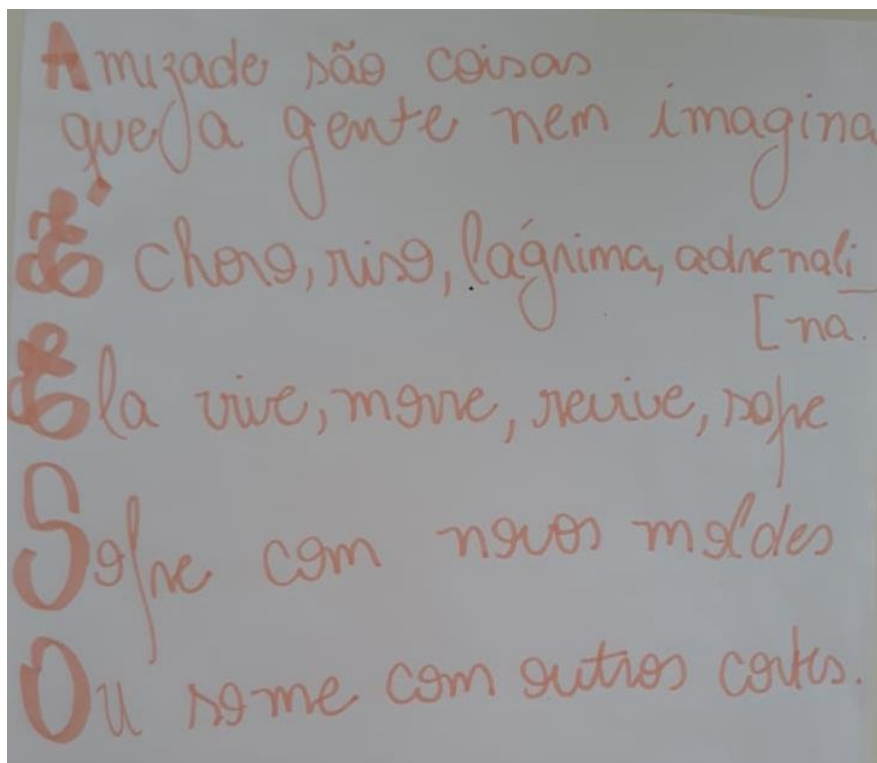 Amizade são coisas
que a gente nem imagina
É choro, riso, lágrima, adrenali
[na.
Ela vive, morre, revive, sofre
Sofre com novos moldes
Ou some com outros cortes.